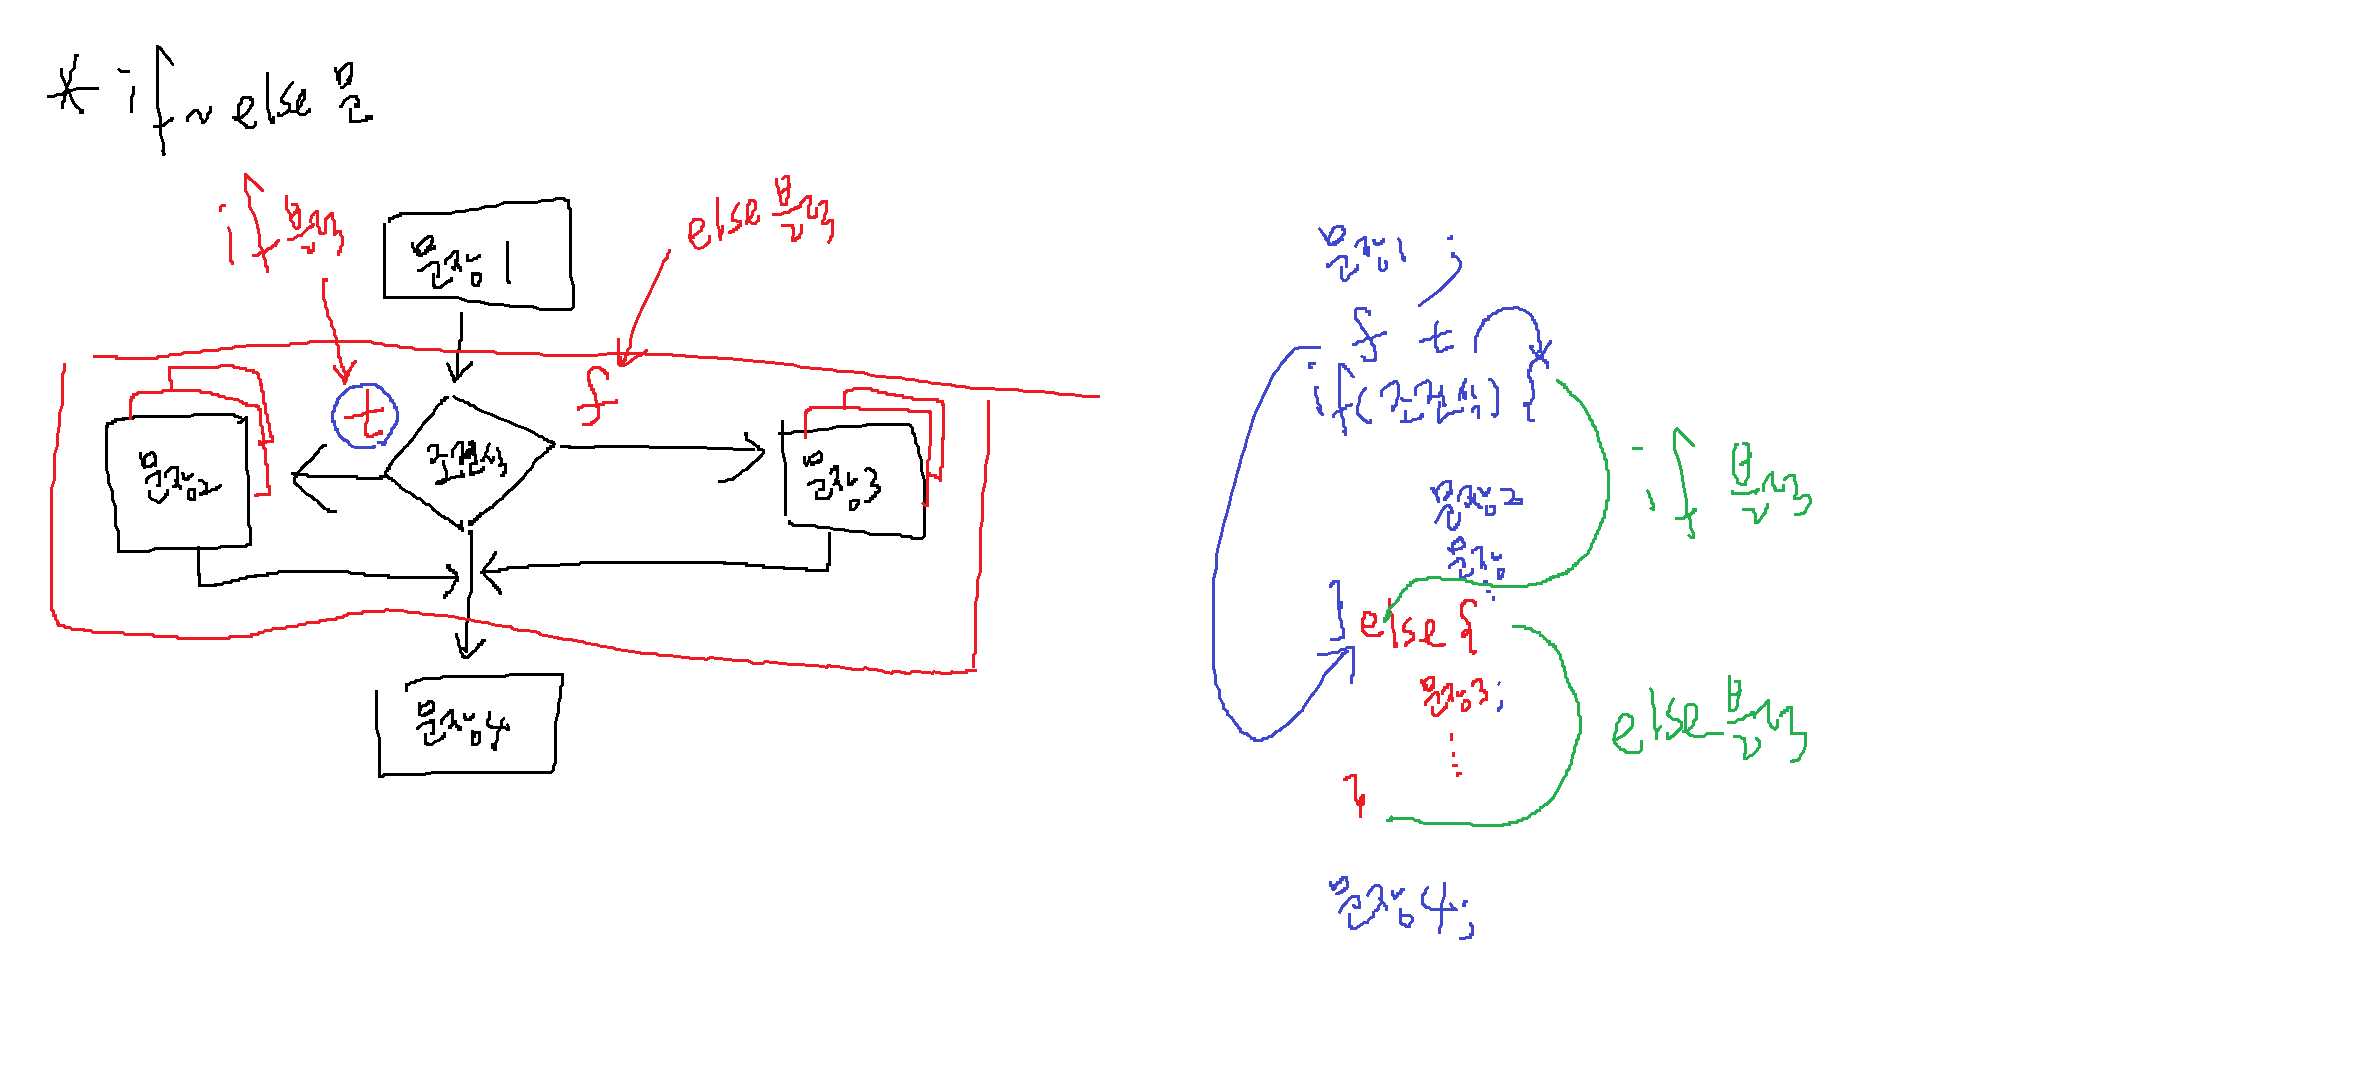 * if ~ else 문
if 블럭
else 블럭
문장1
t
f
조건식
문장2
문장3
문장4
문장1 ;
f t
if(조건식) {
문장2
문장
;
} else {
문장3;
...
}
문장4;
if 블럭
else 블럭